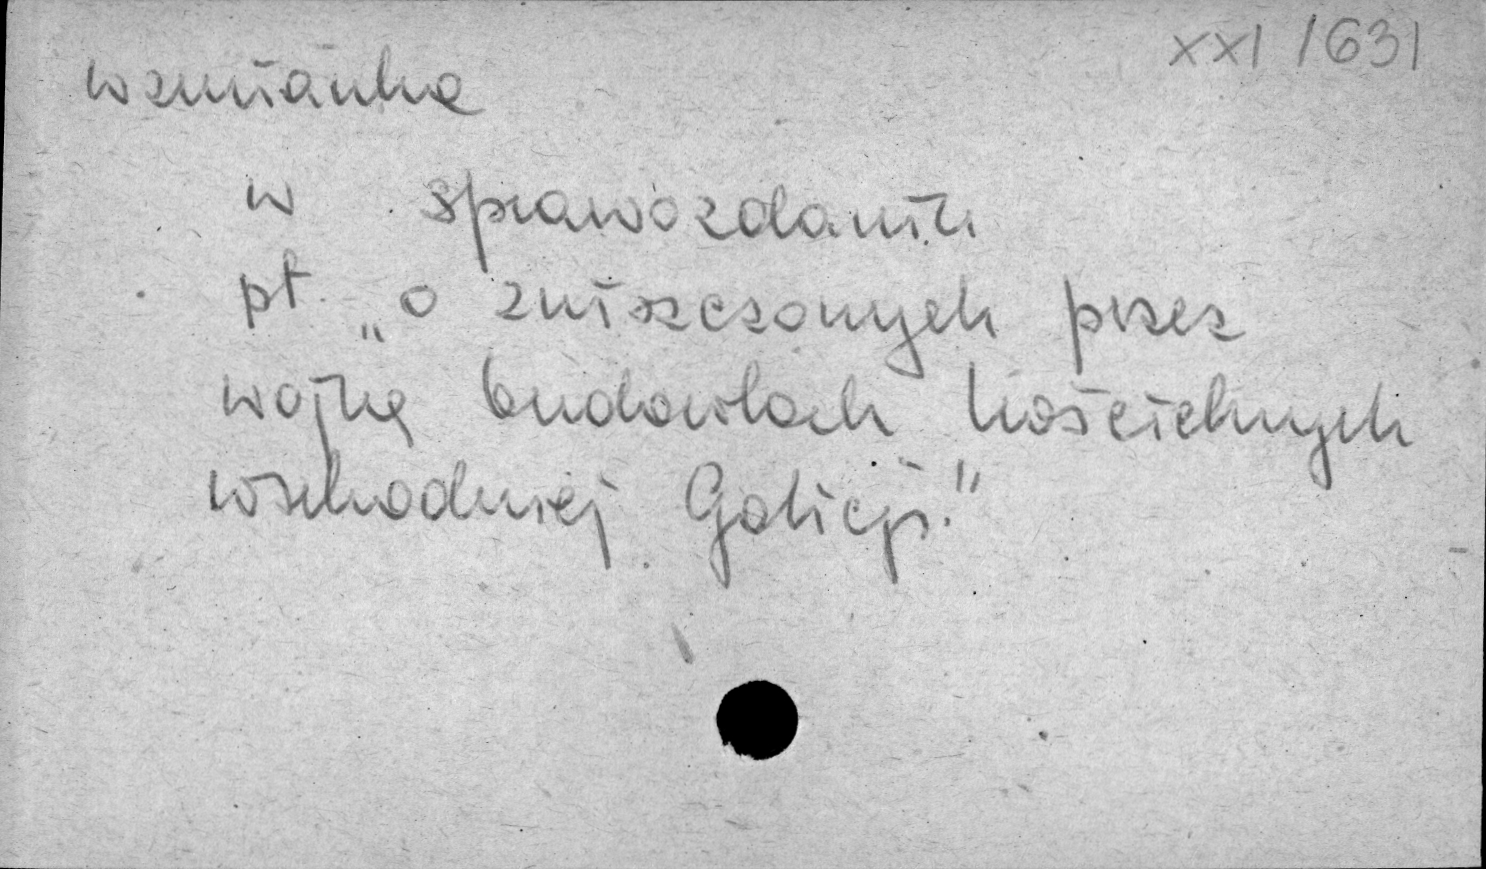 XXI / 631
wzmianka
w sprawozdaniu
pt. „o zniszczonych przez
wojnę budowlach kościelnych
wschodniej Galicji."